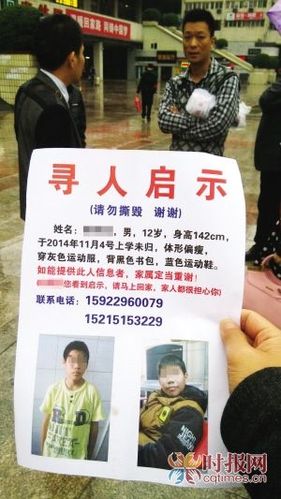 温暖回家路 同铸中国梦
寻人启示
(请勿撕毁 谢谢)
姓名: 男, 12岁, 身高142cm,
于2014年11月4号上学未归, 体形偏瘦,
穿灰色运动服, 背黑色书包, 蓝色运动鞋。
如能提供此人信息者, 家属定当重谢!
您看到启示, 请马上回家, 家人都很担心你!
联系电话: 15922960079
15215153229
时报网
cqtimes.cn